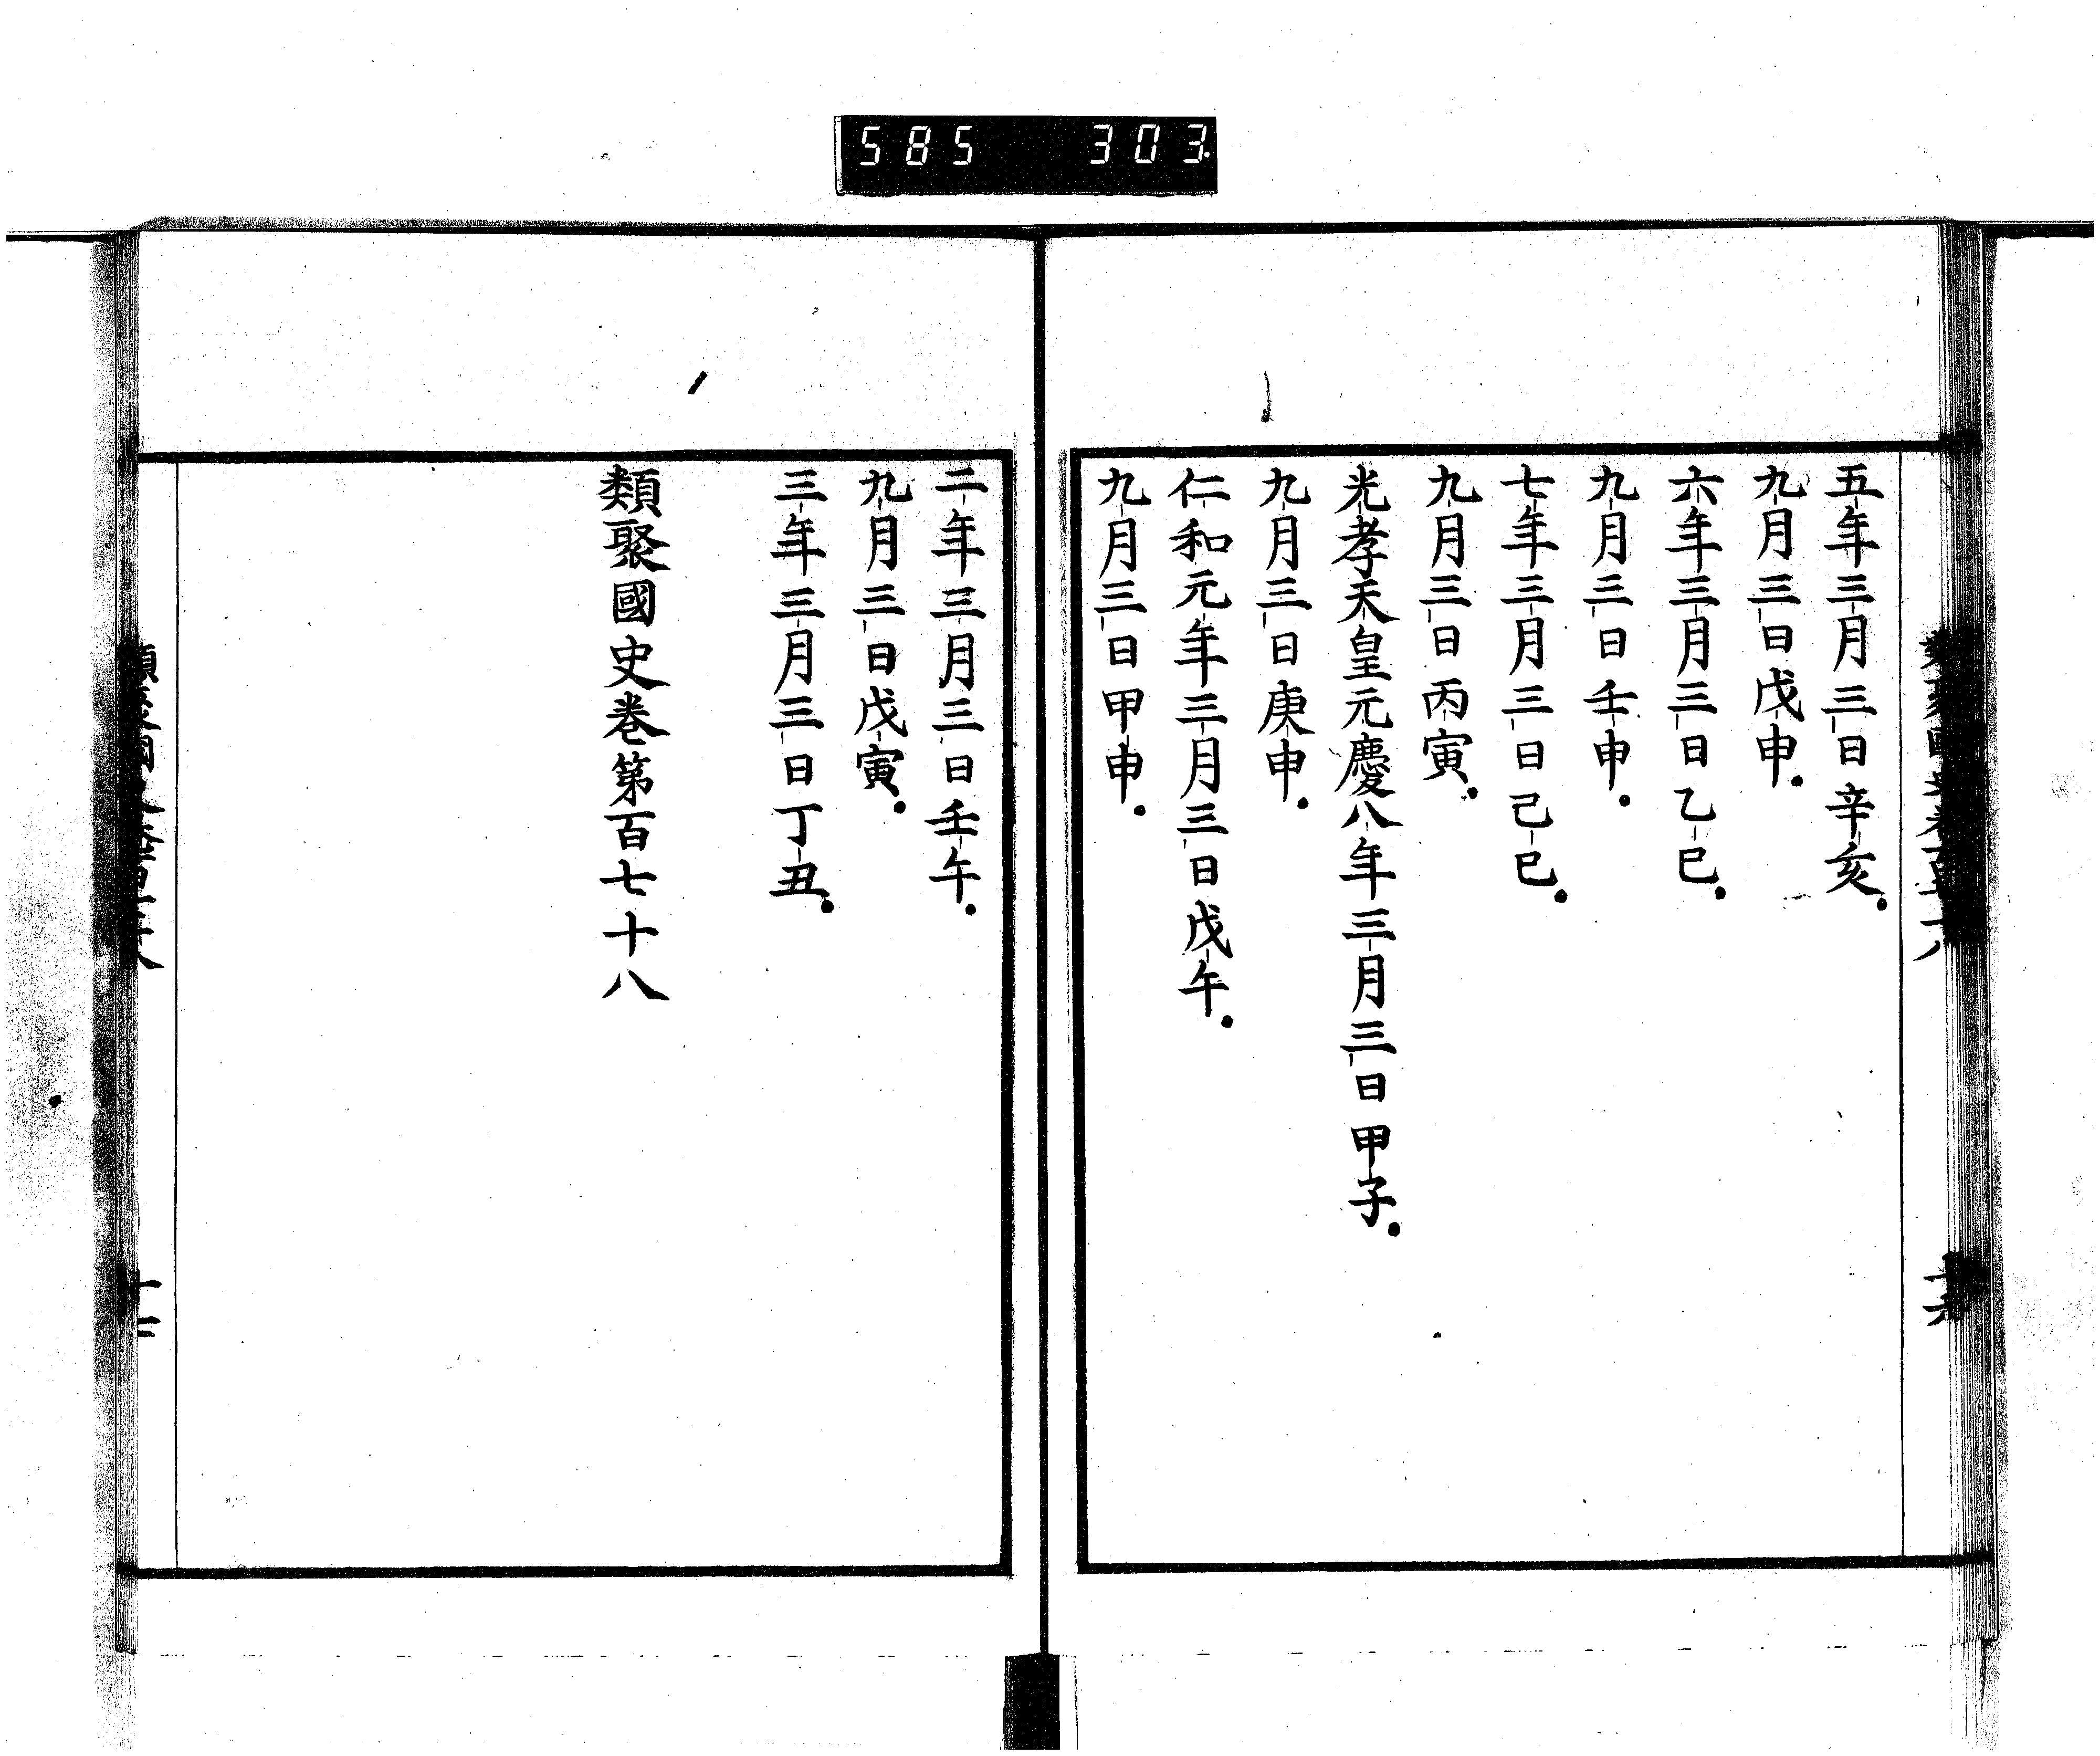 585 303
五年三月三日辛亥
九月三日戊申
六年三月三日乙巳
九月三日壬申
七年三月三日己巳
九月三日丙寅
光孝天皇元慶八年三月三日甲子
九月三日庚申
仁和元年三月三日戊午
九月三日甲申
二年三月三日壬午
九月三日戊寅
三年三月三日丁丑
類聚國史卷第百七十八
十七